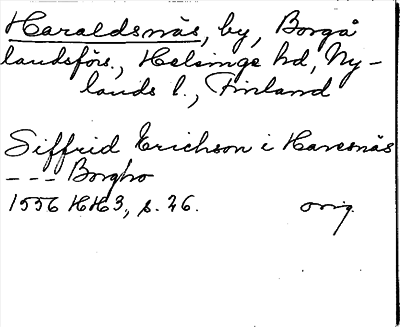 Haraldsnäs, by, Borgå
landsförs., Helsinge hd, Ny-
lands l., Finland
Siffrid Erichson i Haresnäs
--- Borgho
1556 HH3, s. 26. orig.